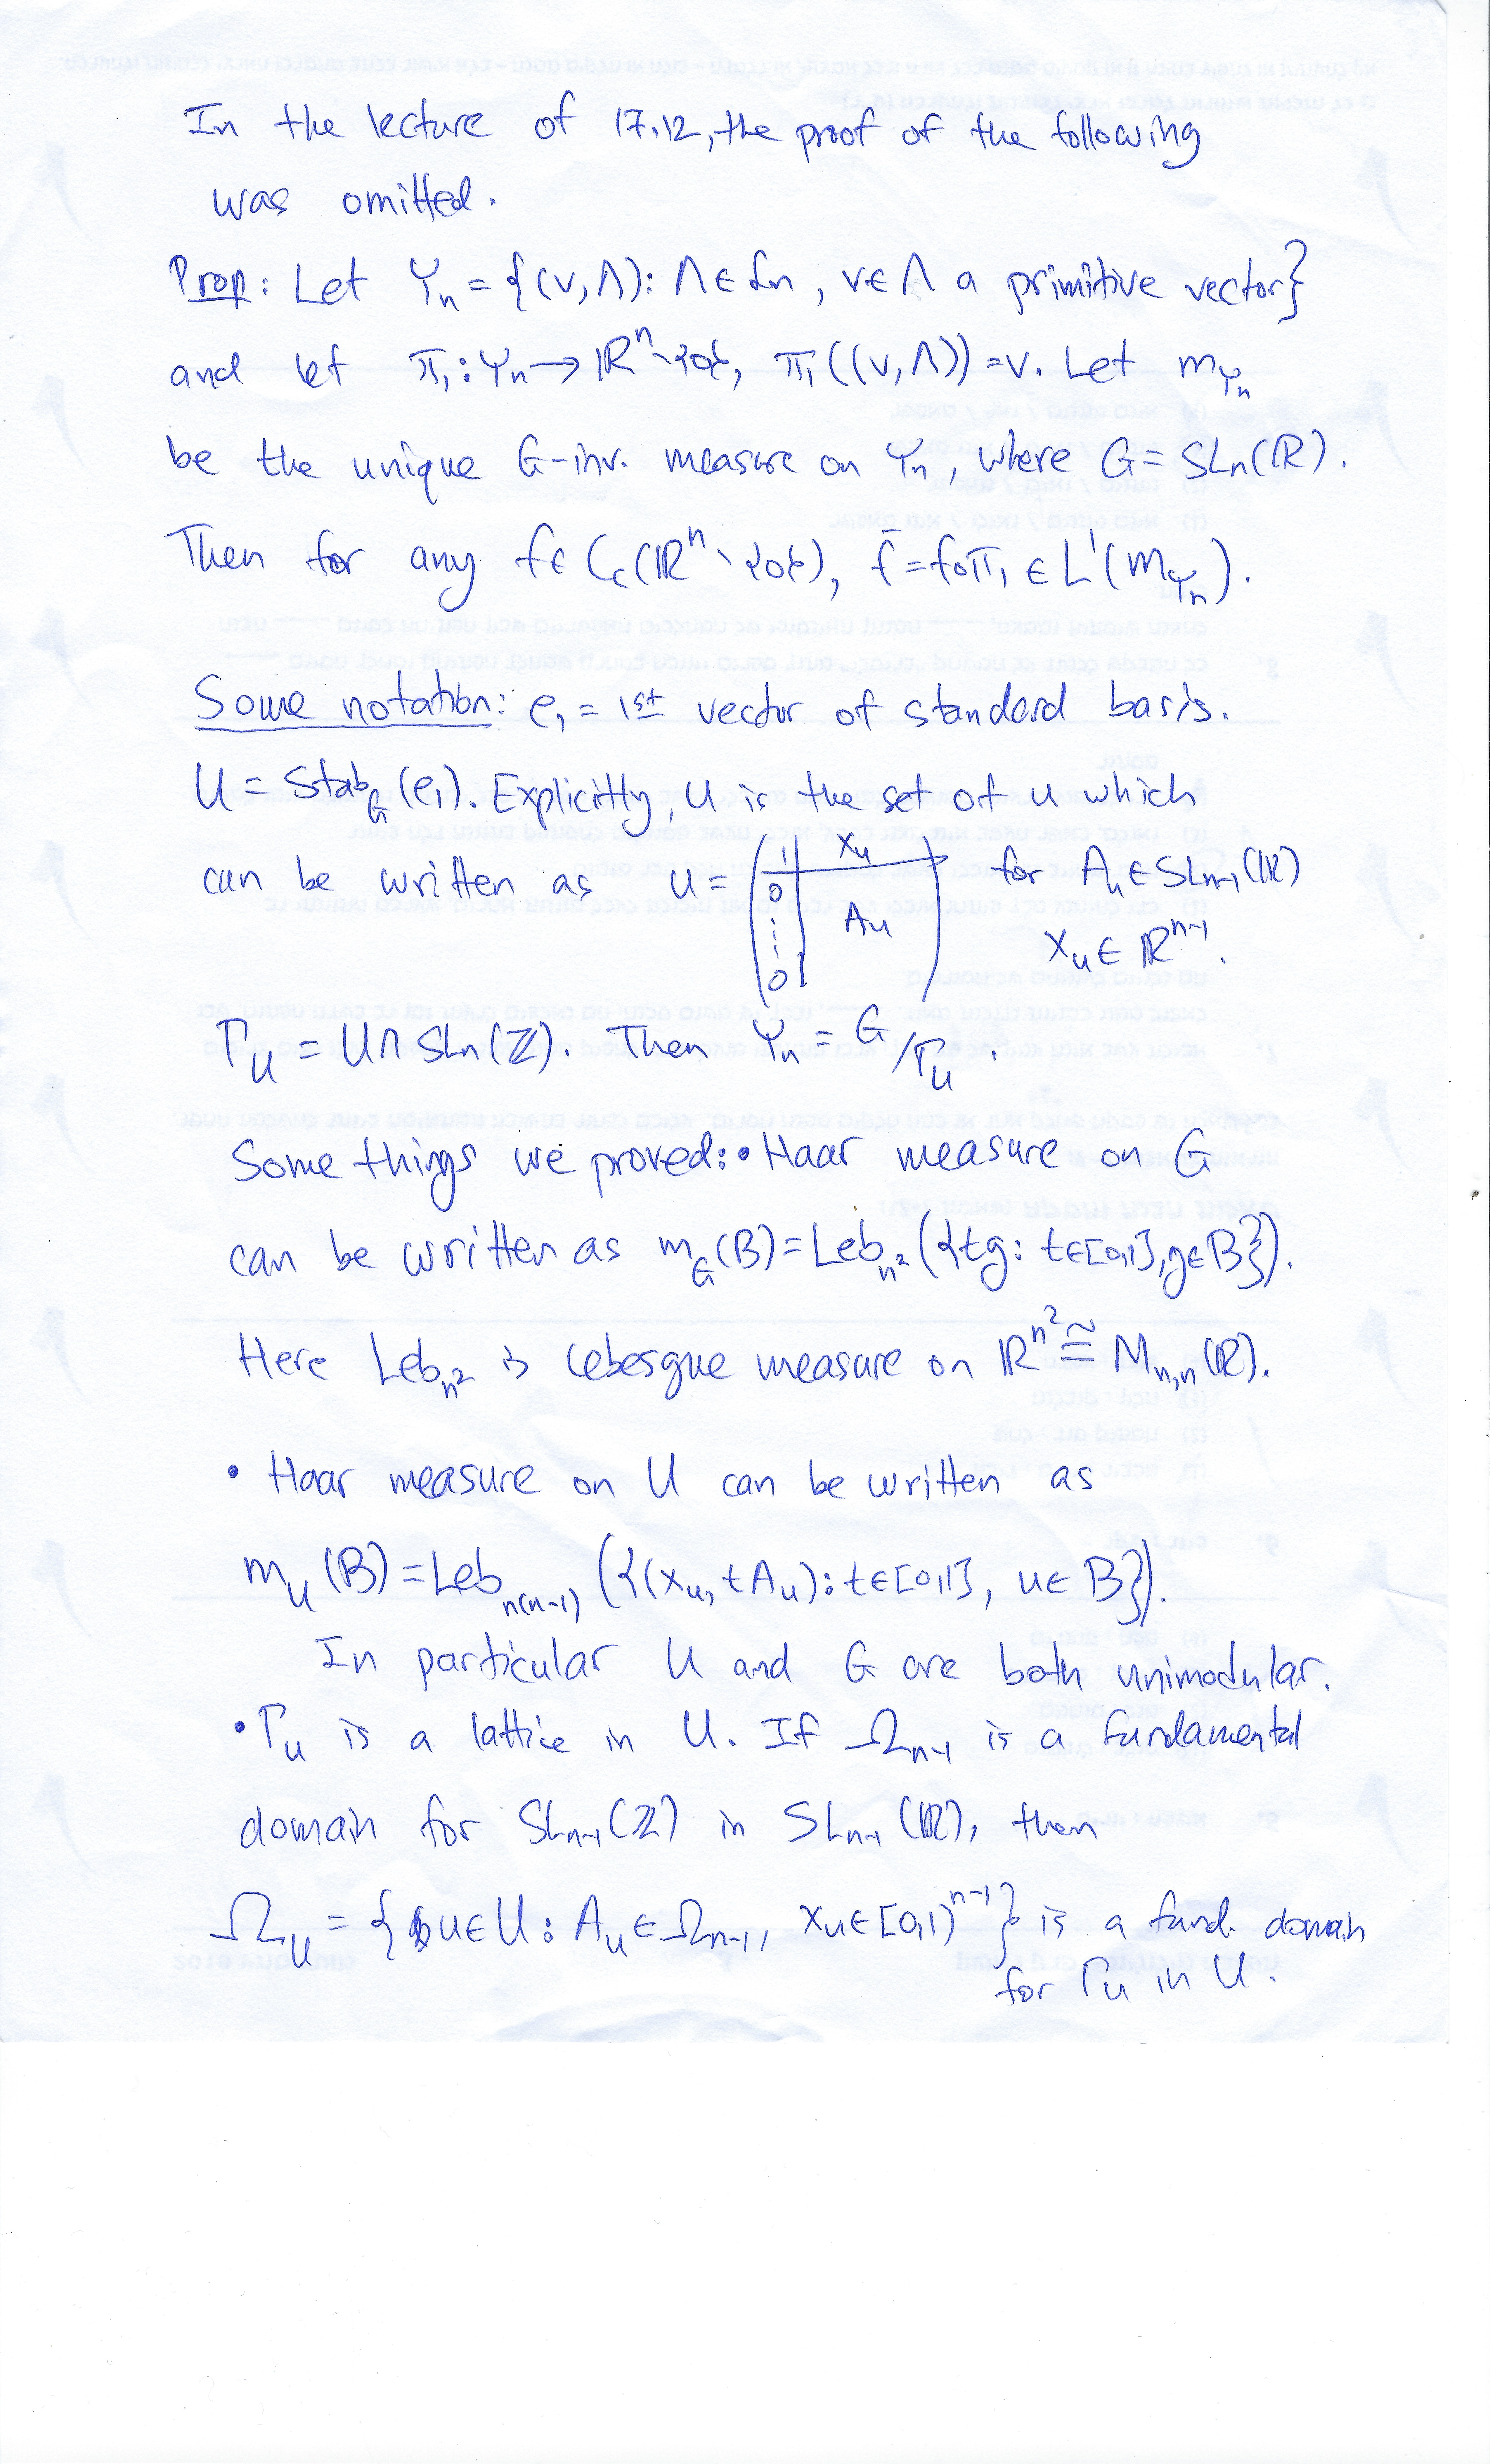 In the lecture of 17.12, the proof of the following
was omitted.
Prop: Let Yₙ = {(v,Λ): Λ∈ℒₙ, v∈Λ a primitive vector}
and let π₁: Yₙ → ℝⁿ∖{0}, π₁((v,Λ)) = v. Let m_{Yₙ}
be the unique G-inv. measure on Yₙ, where G = SLₙ(ℝ).
Then for any f∈C_c(ℝⁿ∖{0}), f̄ = f∘π₁ ∈ L¹(m_{Yₙ}).
Some notation: e₁ = 1st vector of standard basis.
U = Stab_G(e₁). Explicitly, U is the set of u which
can be written as u = (1 x_u; 0 ⋮ 0 A_u) for A_u∈SL_{n-1}(ℝ)
x_u∈ℝ^{n-1}.
Γ_U = U∩SLₙ(ℤ). Then Yₙ = G/Γ_U.
Some things we proved: • Haar measure on G
can be written as m_G(B) = Leb_{n²}({tg: t∈[0,1], g∈B}).
Here Leb_{n²} is Lebesgue measure on ℝ^{n²} ≅ M_{n,n}(ℝ).
• Haar measure on U can be written as
m_U(B) = Leb_{n(n-1)}({(x_u, tA_u): t∈[0,1], u∈B}).
In particular U and G are both unimodular.
• Γ_U is a lattice in U. If Ω_{n-1} is a fundamental
domain for SL_{n-1}(ℤ) in SL_{n-1}(ℝ), then
Ω_U = {u∈U: A_u∈Ω_{n-1}, x_u∈[0,1)^{n-1}} is a fund. domain
for Γ_U in U.